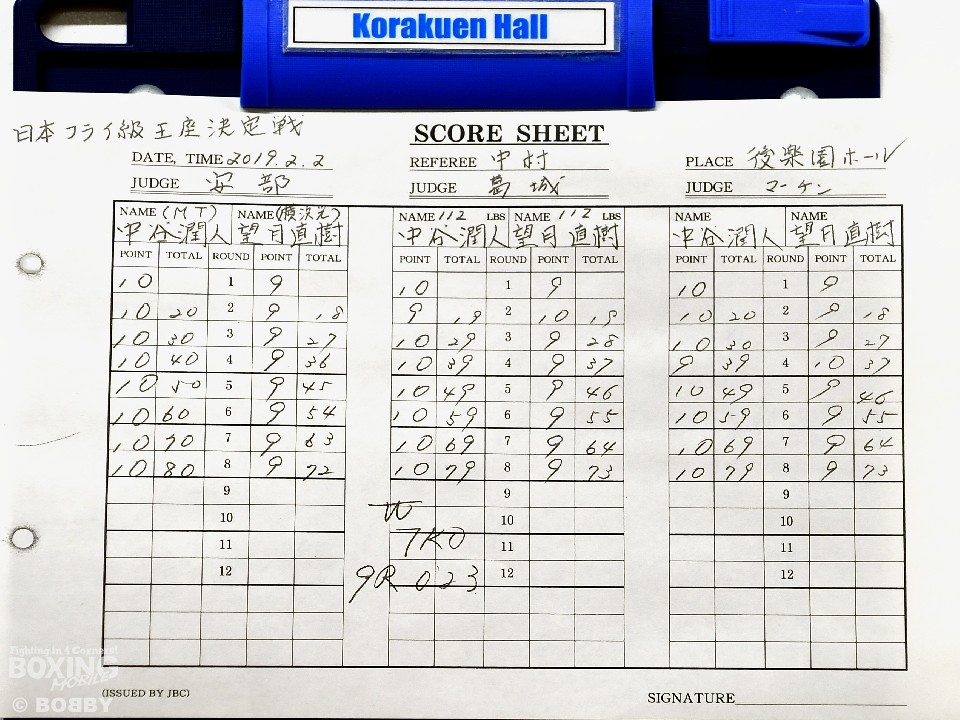 Korakuen Hall
日本フライ級王座決定戦
SCORE SHEET
DATE, TIME 2019.2.2 REFEREE 中村 PLACE 後楽園ホール
JUDGE 安部 JUDGE 葛城 JUDGE マーケン
NAME (MT) NAME (横浜光) NAME 112 LBS NAME 112 LBS NAME NAME
中谷潤人 望月直樹 中谷潤人 望月直樹 中谷潤人 望月直樹
POINT TOTAL ROUND POINT TOTAL POINT TOTAL ROUND POINT TOTAL POINT TOTAL ROUND POINT TOTAL
10 1 9 10 1 9 10 1 9
10 20 2 9 18 9 19 2 10 19 10 20 2 9 18
10 30 3 9 27 10 29 3 9 28 10 30 3 9 27
10 40 4 9 36 10 39 4 9 37 9 39 4 10 37
10 50 5 9 45 10 49 5 9 46 10 49 5 9 46
10 60 6 9 54 10 59 6 9 55 10 59 6 9 55
10 70 7 9 63 10 69 7 9 64 10 69 7 9 64
10 80 8 9 72 10 79 8 9 73 10 79 8 9 73
9 9 9
10 W 10 10
11 TKO 11 11
12 9R 023 12 12
Fighting in 4 Corners!
BOXING
MOBILE
© BOBBY
(ISSUED BY JBC)
SIGNATURE